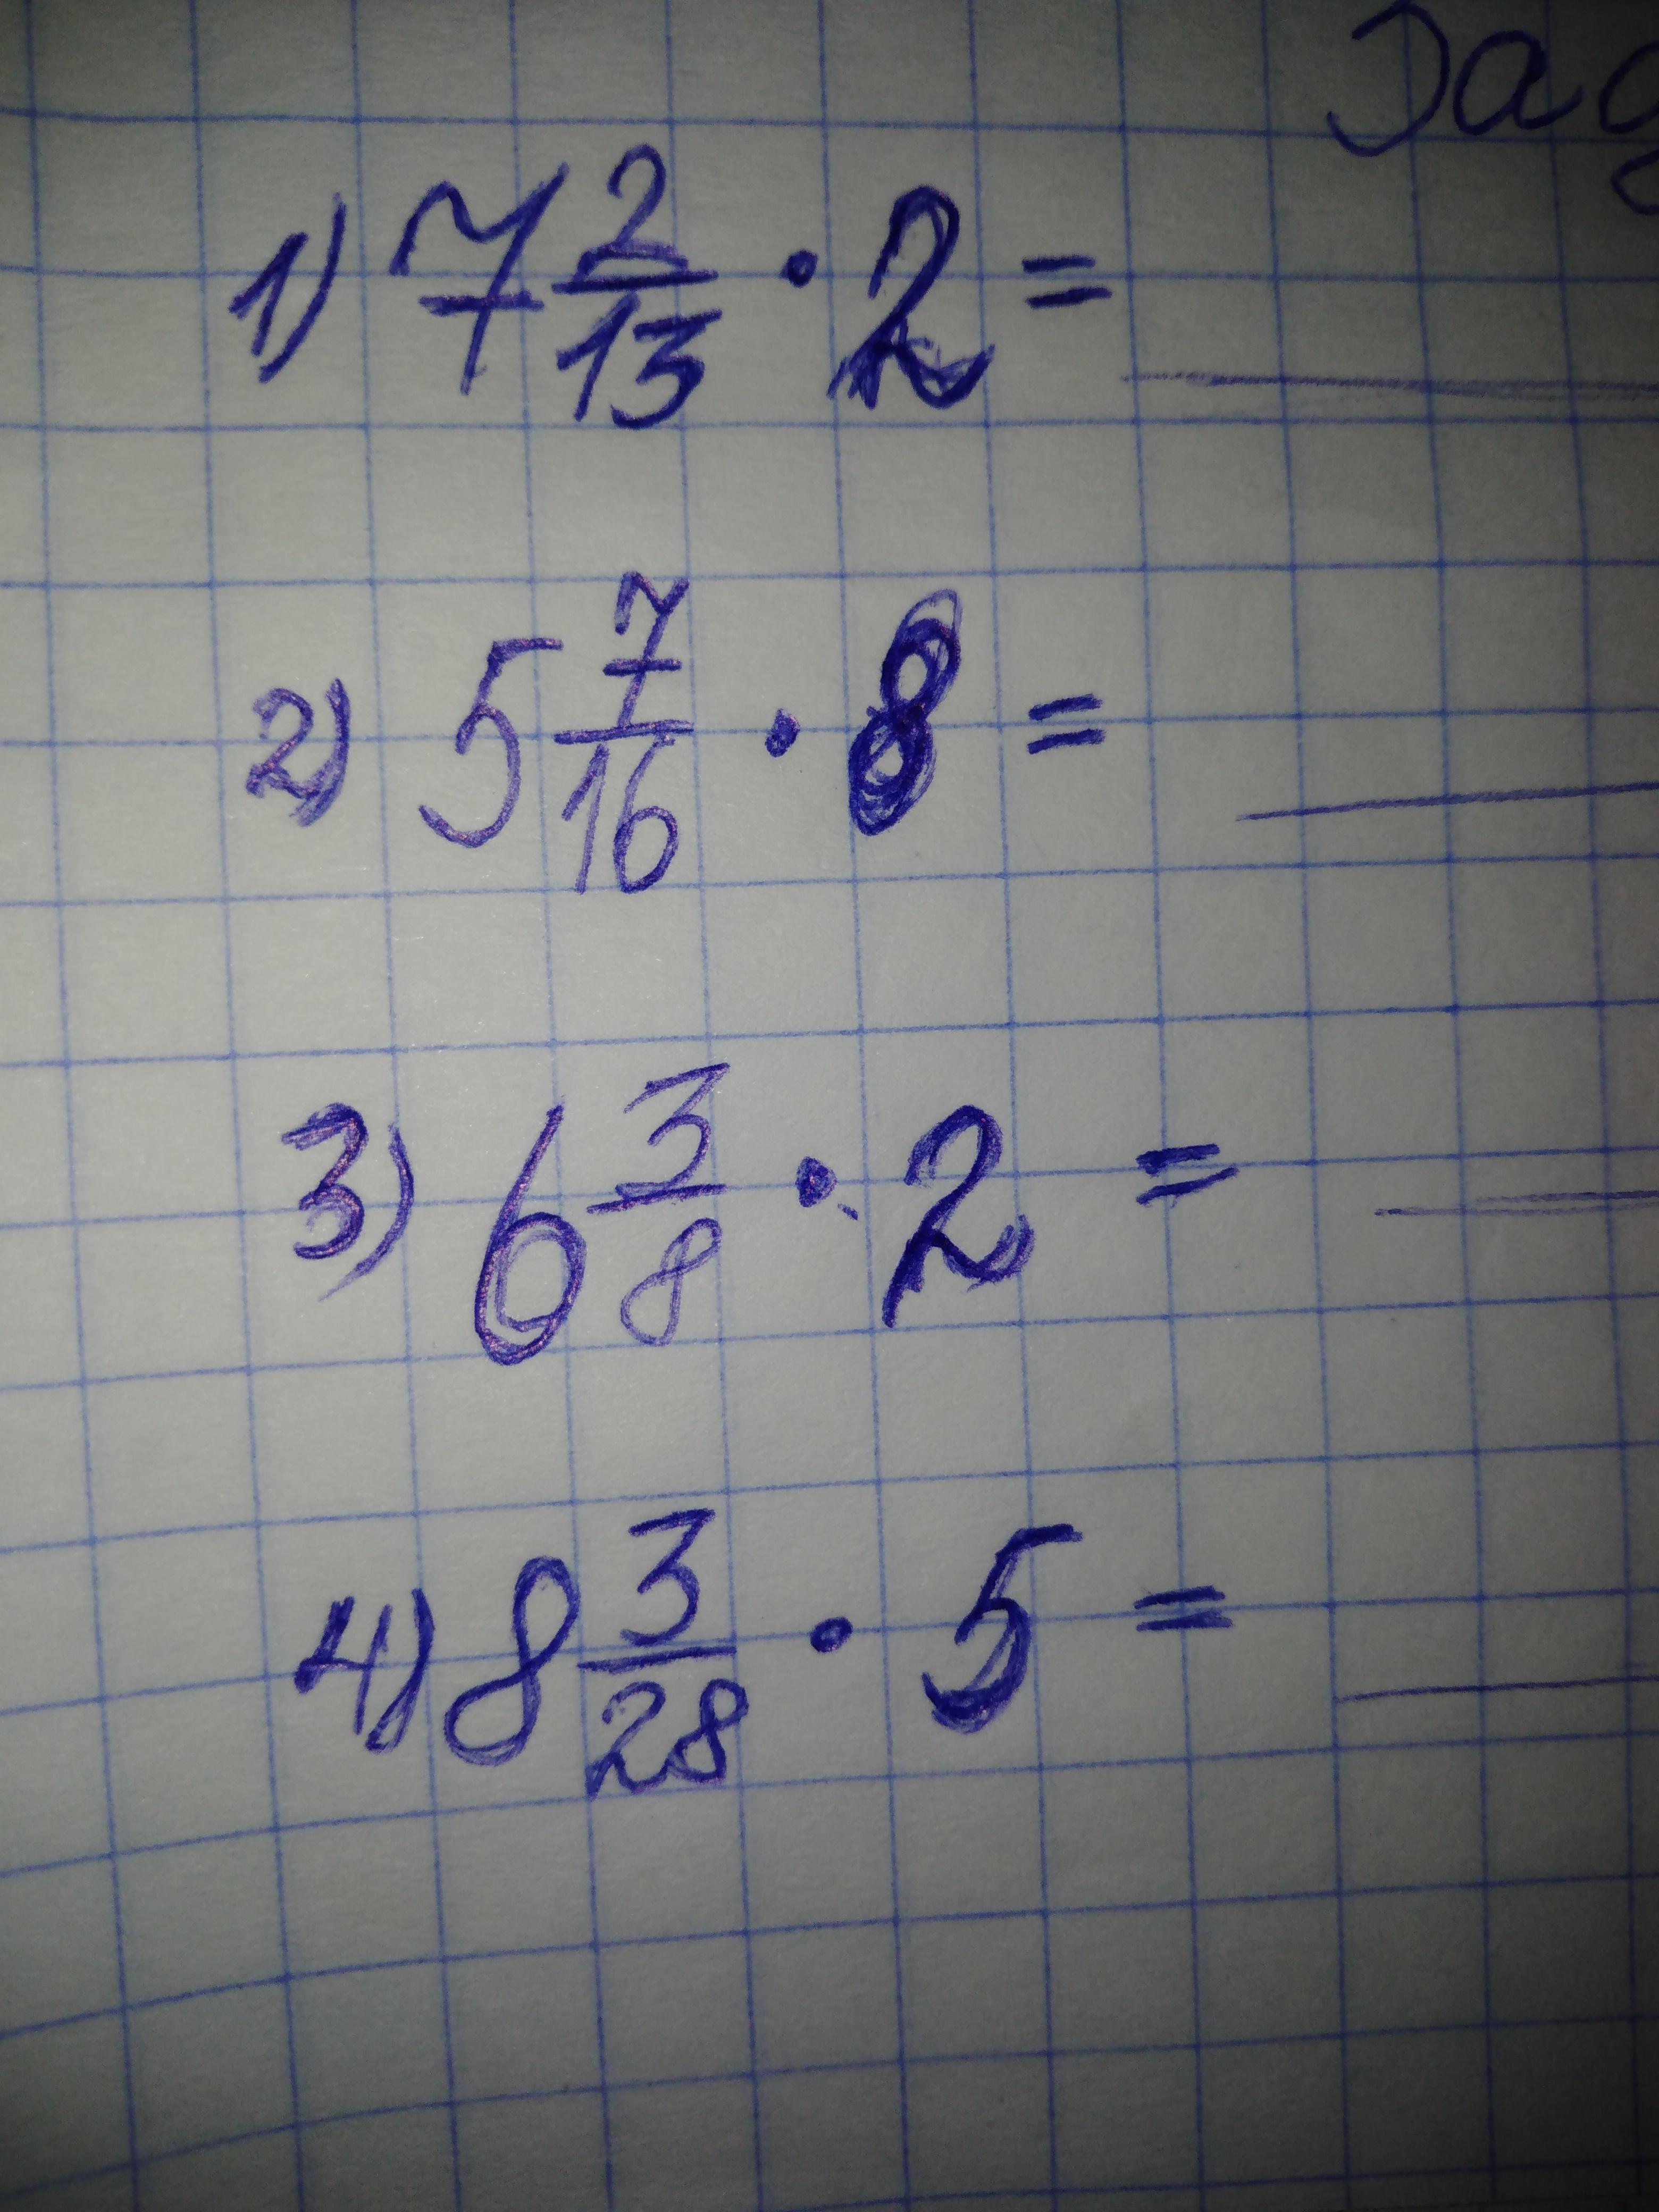 1) 7 2/13 · 2 =
2) 5 7/16 · 8 =
3) 6 3/8 · 2 =
4) 8 3/28 · 5 =